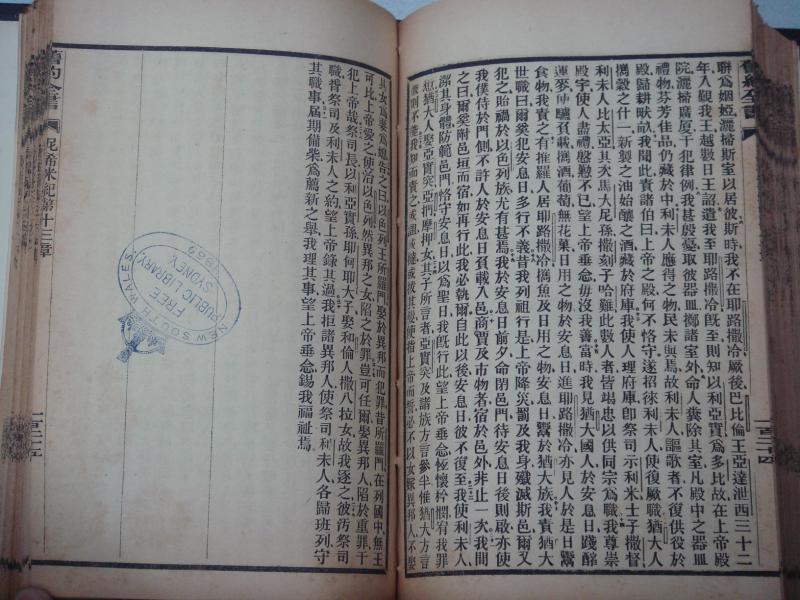 聯爲姻婭灑掃斯室以居彼斯時我不在耶路撒冷厥後巴比倫王亞達泄西三十二
年入覲我王越數日王詔遣我至耶路撒冷旣至則知以利亞實爲多比故在上帝殿
院灑掃廣厦干犯律例我甚殷憂取彼器皿擲諸室外命人糞除其室凡殿中之器皿
禮物芬芳佳品仍藏於中利未人應得之物民未與焉故利未人謳歌者不復供役於
殿歸耕畎畝我聞此責諸伯曰上帝之殿何不恪守遂招徠利未人使復厥職猶大人
擕穀之什一新製之油始釀之酒藏於府庫我使人理府庫卽祭司示利米士子撒督
利未人比太亞其次馬大尼孫撒刻子哈難此數人者皆塲忠以供同宗爲職我尊崇
殿宇使人盡禮慇懃不已望上帝垂念毋沒我善當時我見猶大國人於安息日踐醡
運麥使驢負載擕酒葡萄無花菓日用之物於安息日進耶路撒冷亦見人於是日鬻
食物我責之有推羅人居耶路撒冷擕魚及日用之物安息日鬻於猶大族我責猶大
世職曰爾奚犯安息日多行不義昔我列祖行是上帝降災罰及我身殲滅斯邑爾又
犯之貽禍於以色列族尤有甚焉我於安息日前夕命閉邑門待安息日後則啟亦使
我僕侍於門側不許人於安息日負載入邑商賈及市物者宿於邑外非止一次我問
之曰爾奚附邑垣而宿如再行此我必執爾自此以後安息日彼不復至我使利未人
潔其身體防範邑門恪守安息日以爲聖日我旣行此望上帝垂念恆懷矜憫宥我罪
愆猶大人娶亞實突亞捫摩押女其子所言者亞實突及諸族方言參半惟猶大方言
則不能我知而責之或詛或撻或拔其髮使指上帝而誓必不以女嫁異邦人不娶
其女爲妻爲媳告之曰以色列王所羅門娶於異邦而犯罪昔所羅門在列國中無王
可比上帝愛之使治以色列然異邦之女陷之於罪豈可任爾娶異邦人陷於重罪干
犯上帝哉祭司長以利亞實孫耶何耶大子娶和倫人撒八拉女故我逐之彼汚祭司
職督祭司及利未人之例望上帝錄其過我拒諸異邦人使祭司利未人各歸班列守
其職事屆期備柴爲薦新之舉我理其事望上帝垂念錫我福祉焉
舊約全書
尼希米記第十三章
一百二十四
一百二十五
NEW SOUTH WALES
FREE
PUBLIC LIBRARY
SYDNEY
1889